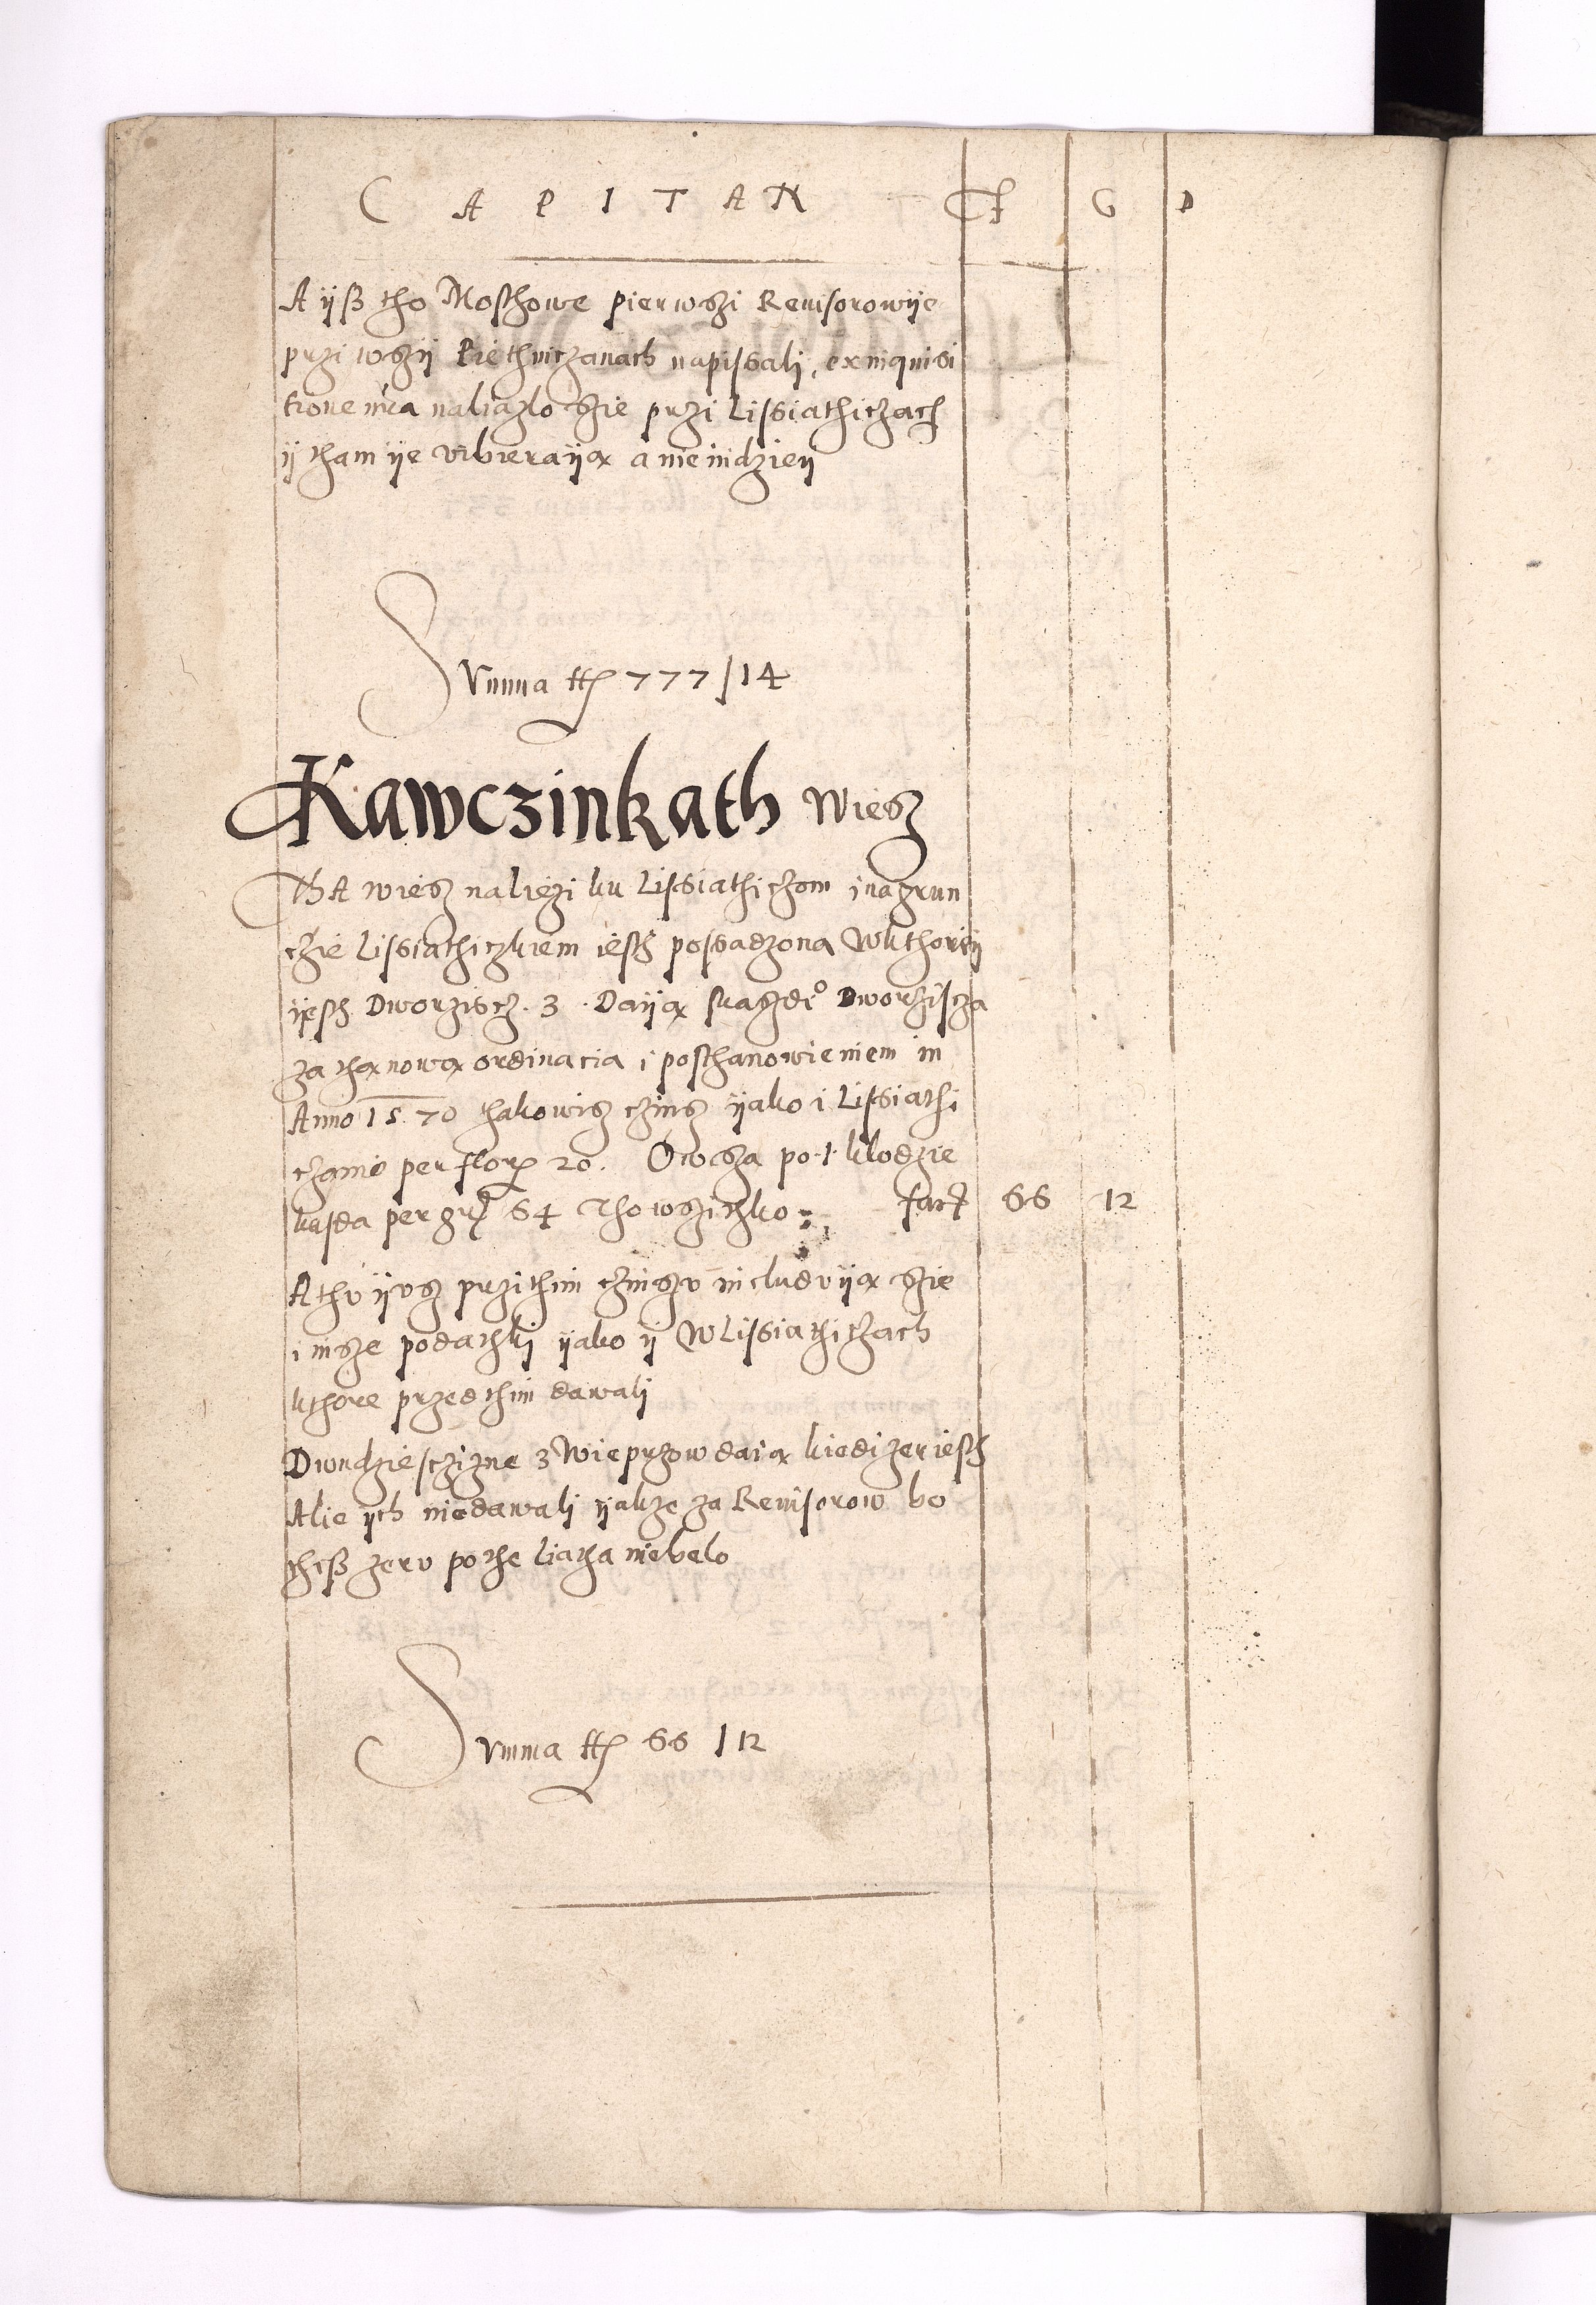 CAPITAN f G D
A ÿß tho Mosthowe pierwszi Rewisorowÿe
przi wszÿ Piethniczanach napissalj, ex inquisi
tione mra naliazlo szie przi Lissiathiczach
ÿ tham ÿe vibieraÿą a nie indzieÿ
Summa ff 777 / 14
Kawczinkath wiesz
Tha wiesz naliezi ku Lissiathiczom i na grun
czie Lissiathiczkiem iesth possadzona w kthoreÿ
ÿesth Dworziscz . 3 . Daÿą s kazdego Dworziscza
za thą nową ordinacia i posthanowieniem in
Anno 1570 thakowisz czinsz ÿako i Lissiathi
czanie per flor 20. Owsza po .1. klodzie
kasda per gr 64 Tho wszithko fact 66 12
A thv ÿvsz przithim czinszv includvÿą szie
i insze podathki ÿako ÿ w Lissiathiczach
kthore przedthim dawalj
Dwudziesczizne 3 Wieprzow daią kiedi zer iesth
Alie ÿch niedawalj ÿakze za Rewisorow bo
theß zerv po the liatha niebelo
Summa ff 66 / 12